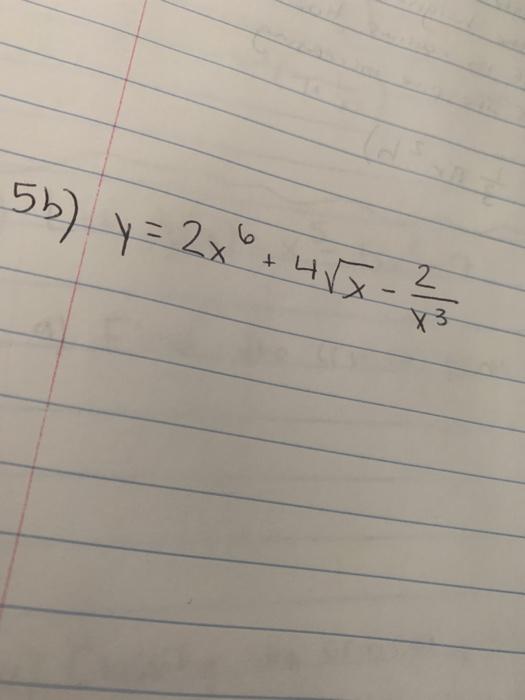 5b) y = 2x⁶ + 4√x - 2/x³